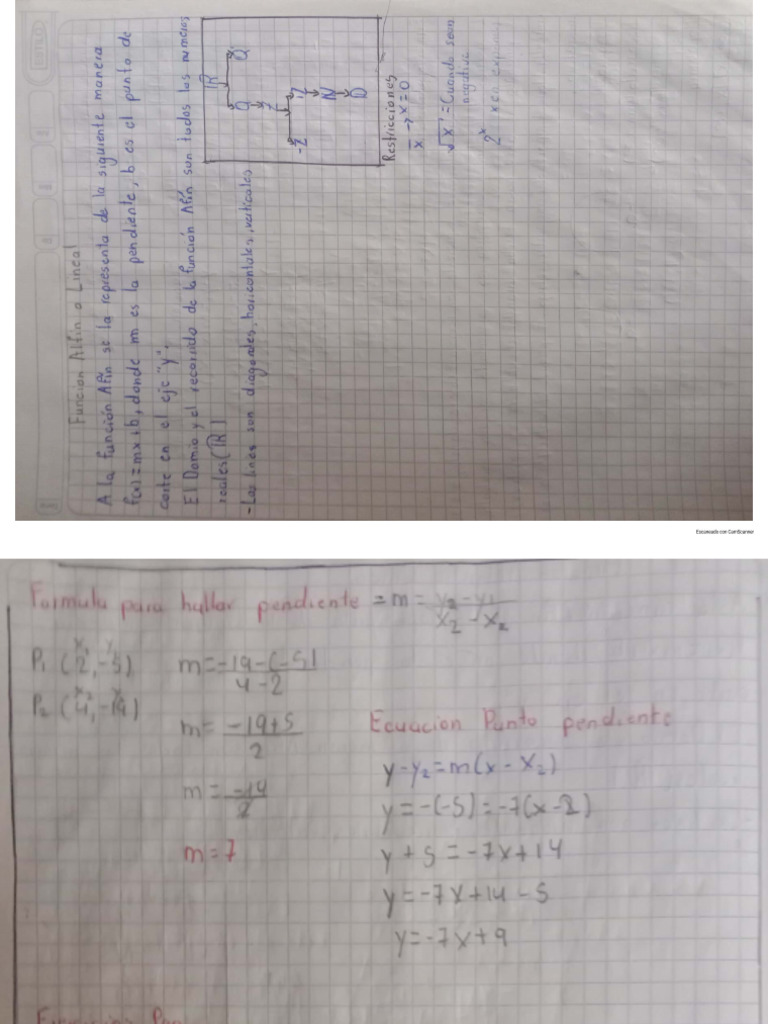 Funcion Alfin o Lineal
A la función Afín se la representa de la siguiente manera
f(x) = mx+b, donde m es la pendiente, b es el punto de
corte en el eje "y".
El Domio y el recorrido de la función Afín son todos los numeros
reales (ℝ)
- Las lines son diagonales, horizontales, verticales
Restricciones
x/x → x=0
√x = Cuando sean
negativa
2ˣ x en
Escaneado con CamScanner
Formula para hallar pendiente = m = y₂ - y₁ / x₂ - x₂
P₁ (2, -5) m = -19-(-5) / 4-2
P₂ (4, -19) m = -19+5 / 2
m = -14 / 2
m = 7
Ecuacion Punto pendiente
y-y₂=m(x-x₂)
y=-(-5)=-7(x-2)
y+5=-7x+14
y=-7x+14-5
y=-7x+9